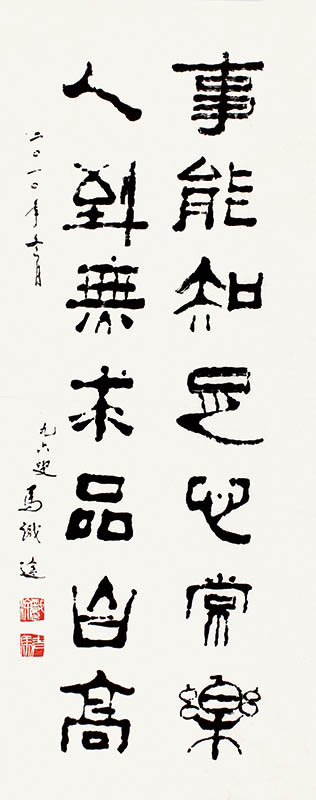 事能知足心常樂
人到無求品自高
二〇一〇年十二月
九六叟馬識途